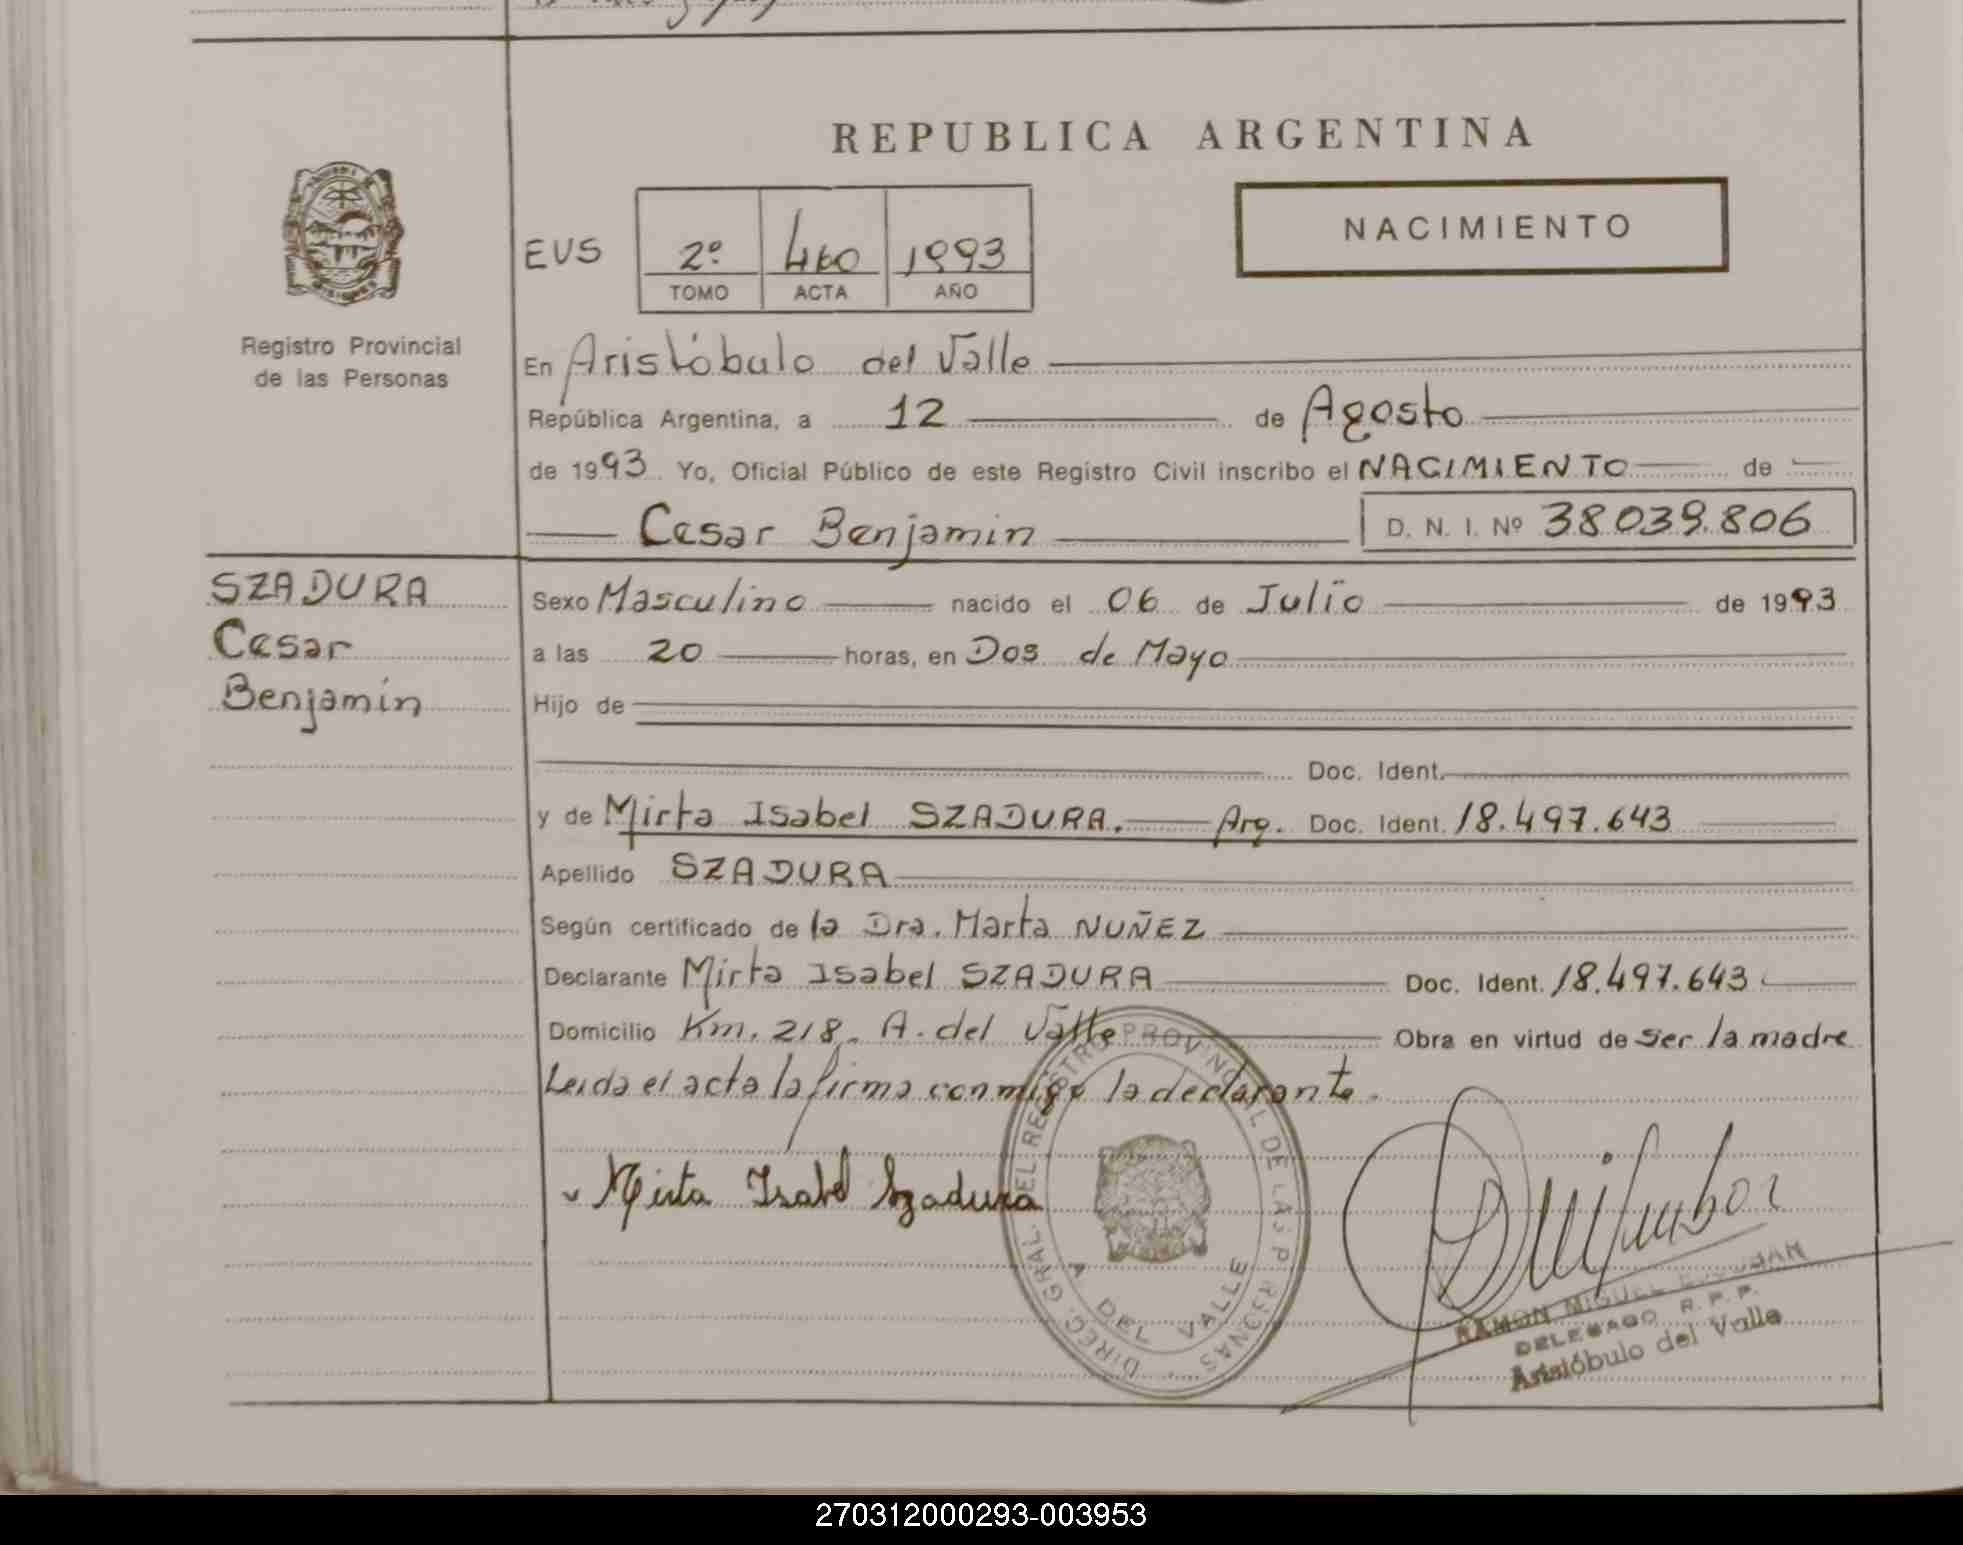 REPUBLICA ARGENTINA
NACIMIENTO
EUS 2º 460 1993
TOMO ACTA AÑO
Registro Provincial
de las Personas
En Aristóbulo del Valle
República Argentina, a 12 de Agosto
de 1993 Yo, Oficial Público de este Registro Civil inscribo el NACIMIENTO de
Cesar Benjamin D. N. I. Nº 38.039.806
SZADURA
Cesar
Benjamín
Sexo Masculino nacido el 06 de Julio de 1993
a las 20 horas, en Dos de Mayo
Hijo de
Doc. Ident.
y de Mirta Isabel SZADURA. Arg. Doc. Ident. 18.497.643
Apellido SZADURA
Según certificado de la Dra. Marta NUÑEZ
Declarante Mirta Isabel SZADURA Doc. Ident. 18.497.643
Domicilio Km. 218. A. del Valle Obra en virtud de ser la madre
Leida el acta la firma conmigo la declarante.
Mirta Isabel Szadura
DIREC. GRAL. DEL REGISTRO PROVINCIAL DE LAS PERSONAS
A. DEL VALLE
RAMON MIGUEL
DELEGADO R. P. P.
Aristóbulo del Valle
270312000293-003953